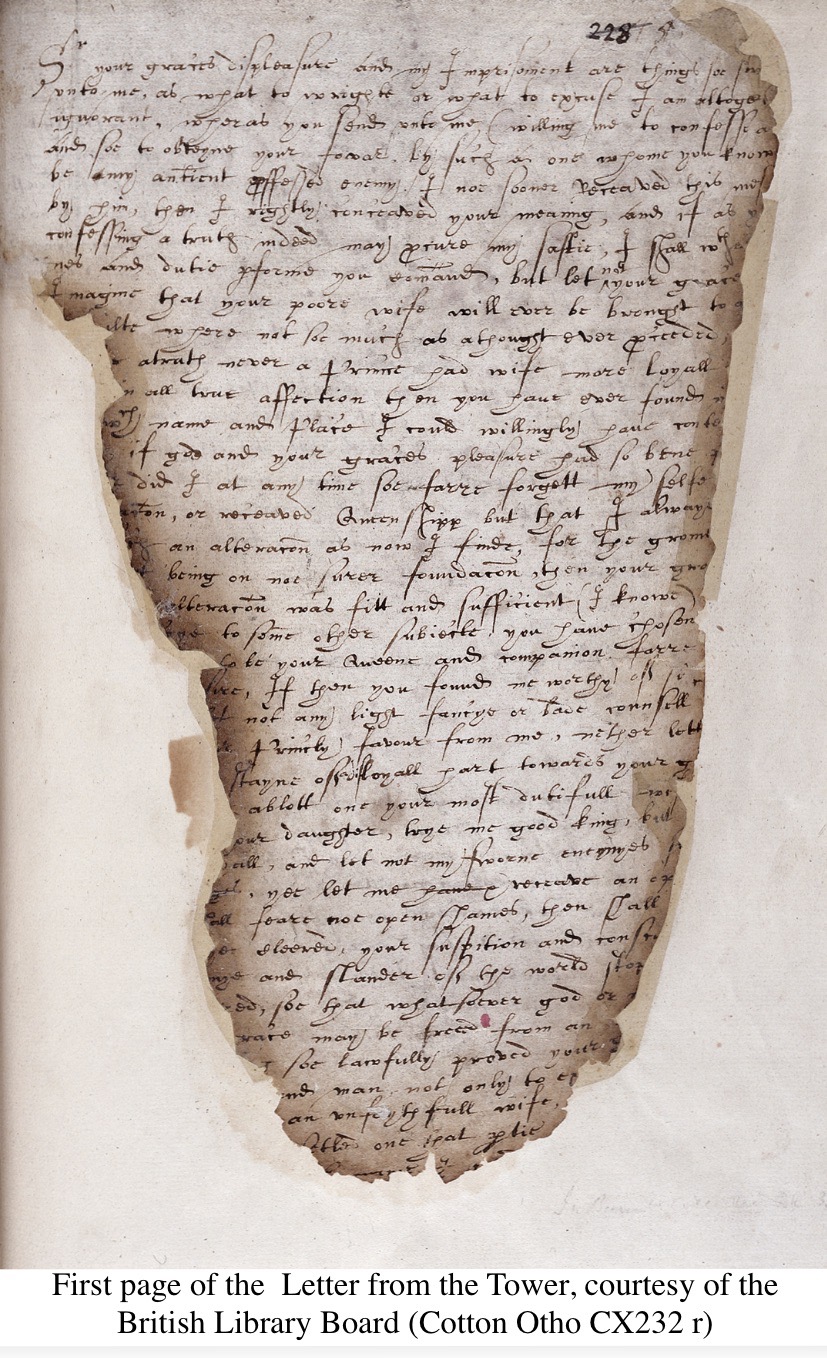 228
Sr your graces displeasure and my Imprisoment are things soe
vnto me, as what to wrighte or what to excuse I am altoge
ignorant, wheras you send vnto me, (willing me to confesse a
and soe to obteyne your favar by such a one whome you know
be my antient proffessed enemy. I noe sooner receaved this mes
by him, then I rightly conceaved your meaing, and if as y
confessing a truth indeed may procure my saftie, I shall wth
nes and dutie pforme you comaund, but let not your grace
Imagine that your poore wife will ever be brought to
ulte where not soe much as athought ever pceeded,
atruth never a Prince had wife more loyall
n all true affection then you have ever found
wch name and Place I could willingly have conte
if god and your graces pleasure had so bene
did I at any time soe farre forgett my selfe
acon, or receaved Queenshipp but that I alway
an alteracon as now I finde, for the grow
being on noe surer foundacon then your gra
alteracon was fitt and sufficient (I knowe
to some other subiecte you have chosen
to be your Queene and companion farre
ire, If then you found me worthy of
not any light fancye or bade counsell
Princly favour from me, nether lett
stayne of disloyall hart towards your g
ablott one your most dutifull
our daughter, trye me good king, but
all, and let not my sworne enemyes
yee let me receave an op
all feare noe open shames, then shall
cleered, your suspition and consc
nye and slander of the world stop
ed, soe that whatsoever god or
race may be freed from an
soe lawfully proved your
nd man not only to
an vnfaythfull wife,
tled one that ptie
First page of the Letter from the Tower, courtesy of the
British Library Board (Cotton Otho CX232 r)